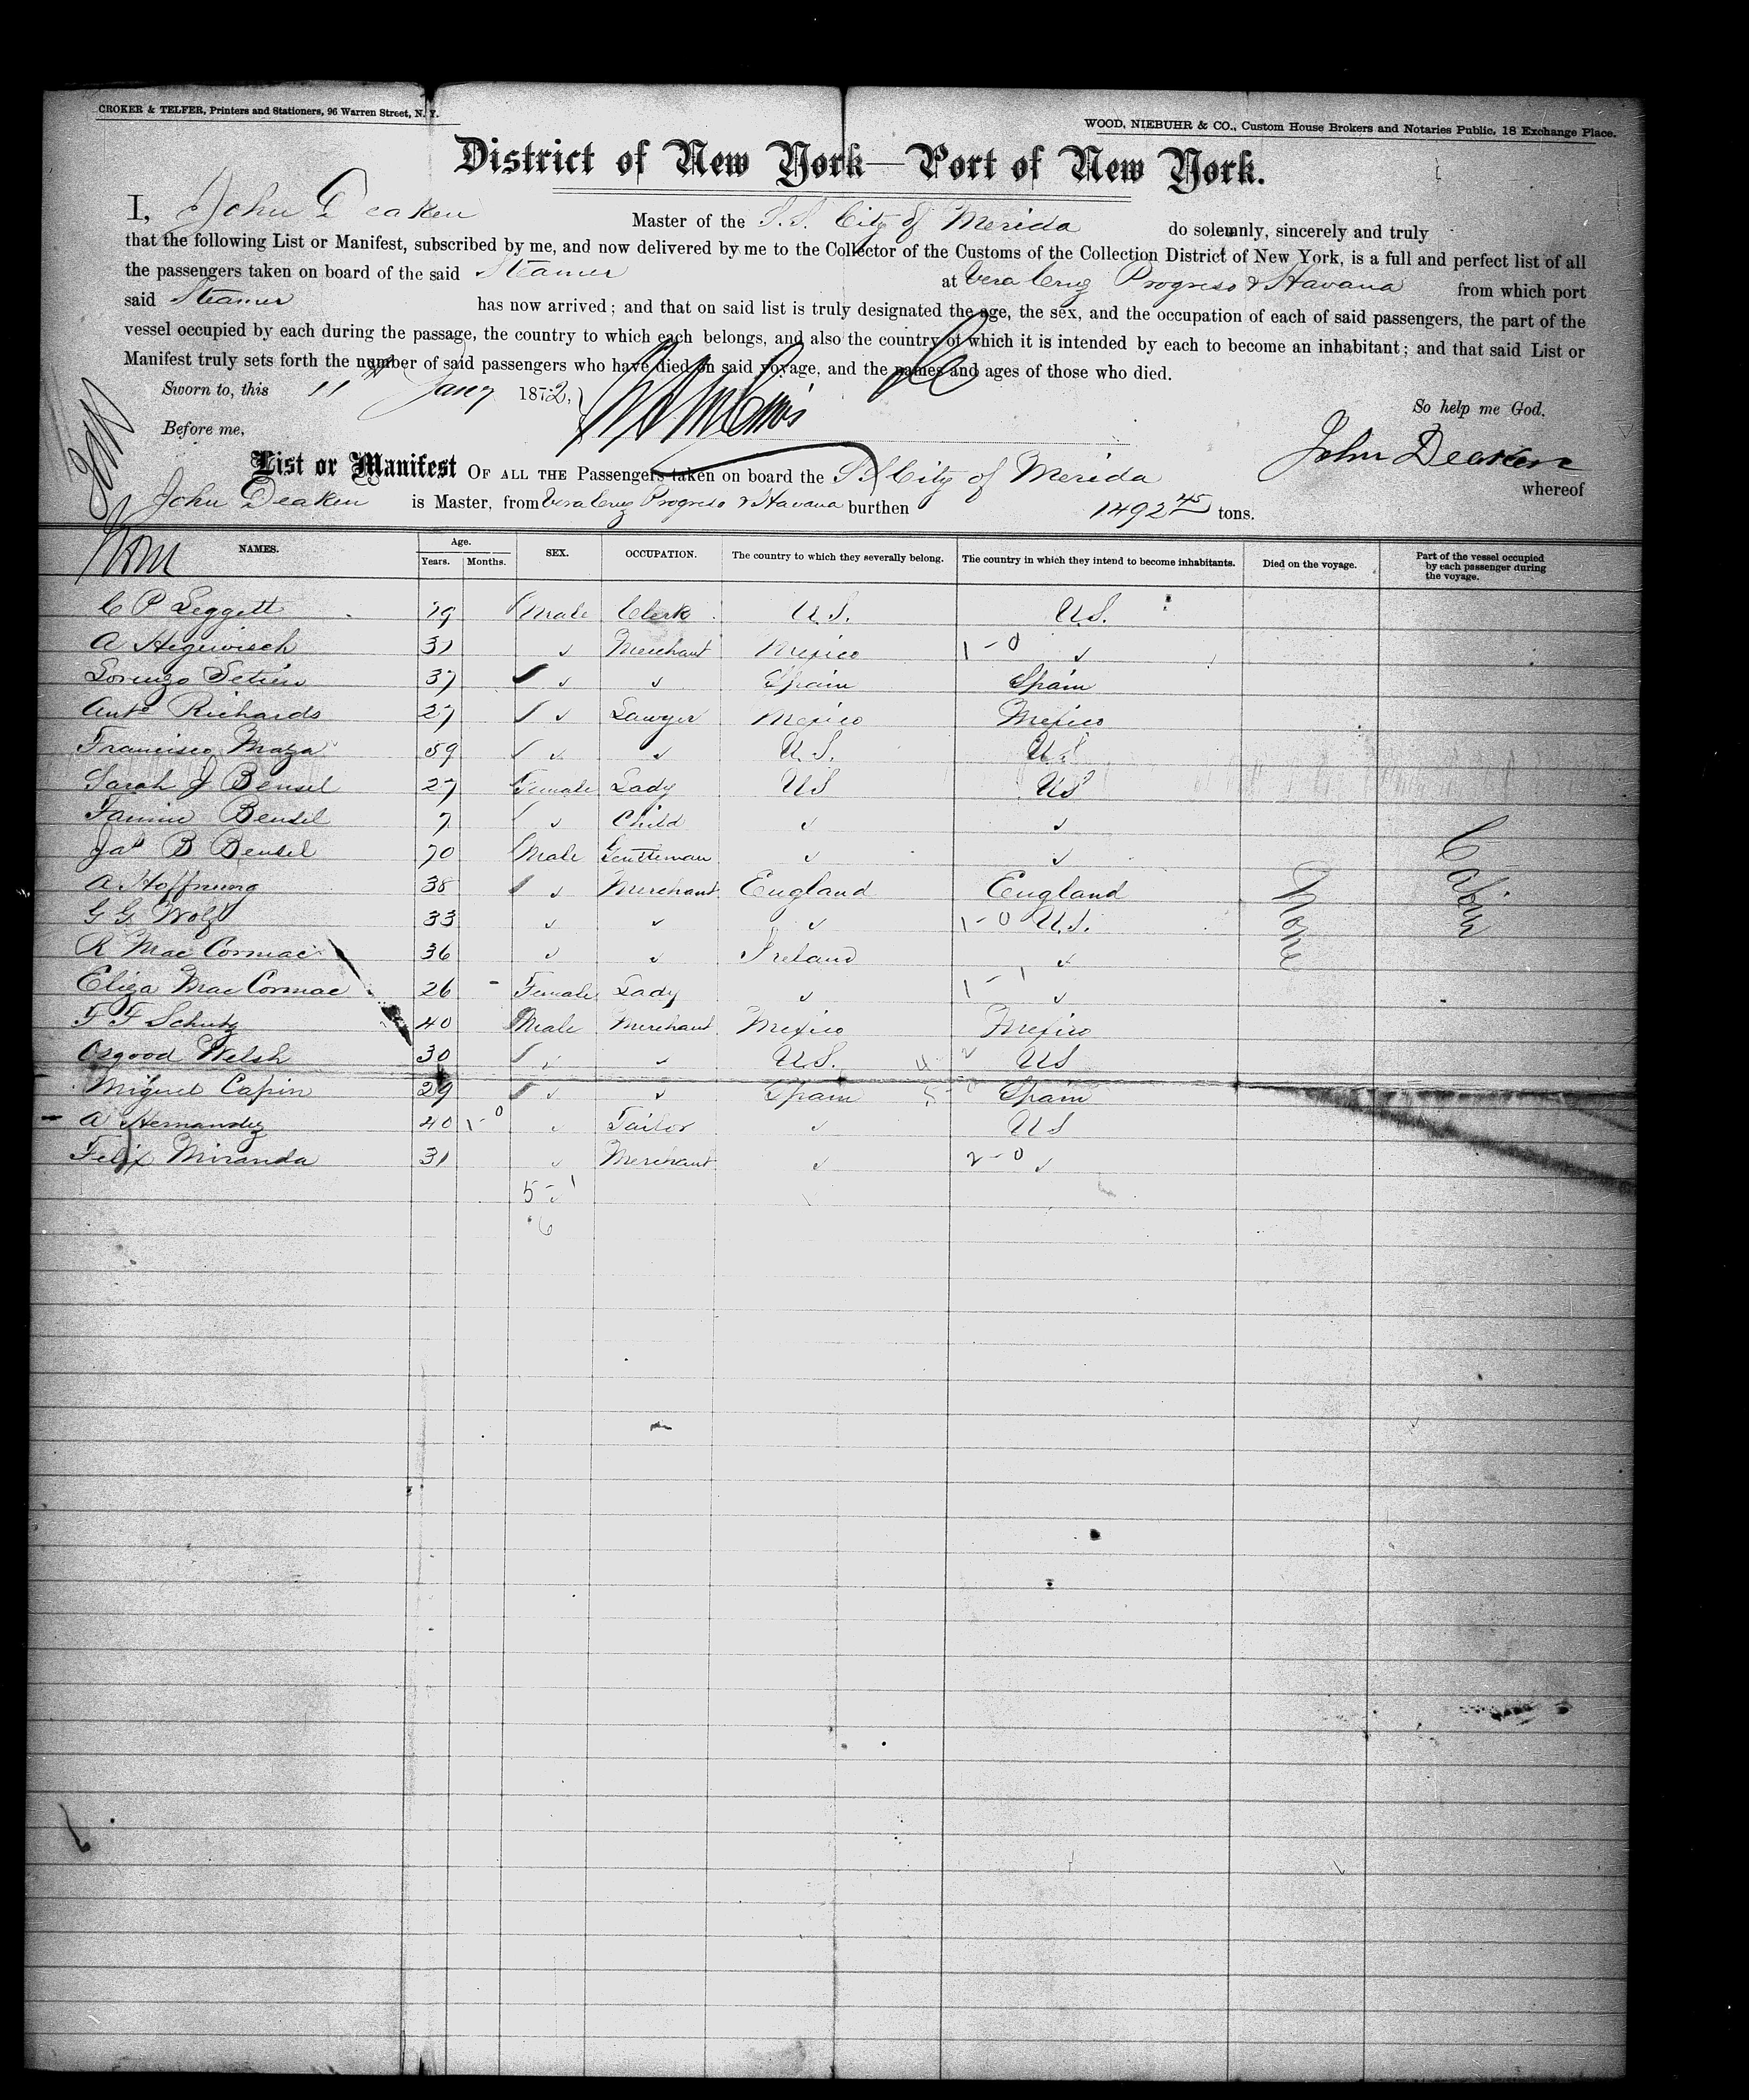 CROKER & TELFER, Printers and Stationers, 96 Warren Street, N. Y.
WOOD, NIEBUHR & CO., Custom House Brokers and Notaries Public, 18 Exchange Place.
District of New York—Port of New York.
I, John Deaken Master of the S.S. City of Merida do solemnly, sincerely and truly
that the following List or Manifest, subscribed by me, and now delivered by me to the Collector of the Customs of the Collection District of New York, is a full and perfect list of all
the passengers taken on board of the said Steamer at Vera Cruz Progreso & Havana from which port
said Steamer has now arrived; and that on said list is truly designated the age, the sex, and the occupation of each of said passengers, the part of the
vessel occupied by each during the passage, the country to which each belongs, and also the country of which it is intended by each to become an inhabitant; and that said List or
Manifest truly sets forth the number of said passengers who have died on said voyage, and the names and ages of those who died.
Sworn to, this 11th Jany 1872,
So help me God.
Before me,
John Deaken
List or Manifest OF ALL THE Passengers taken on board the SS City of Merida whereof
John Deaken is Master, from Vera Cruz Progreso & Havana burthen 1492 45 tons.
NAMES. Age. Years. Months. SEX. OCCUPATION. The country to which they severally belong. The country in which they intend to become inhabitants. Died on the voyage. Part of the vessel occupied by each passenger during the voyage.
C P Leggett Male Clerk U.S. U.S.
A Hegewisch 31 ✓ Merchant Mexico 1-0 ✓
Lorenzo Setien 37 ✓ ✓ Spain Spain
Anto Richards 27 ✓ Lawyer Mexico Mexico
Francisco Maza 59 ✓ ✓ U.S. U.S
Sarah J Bensel 27 Female Lady US US
Fannie Bensel 7 ✓ Child ✓ ✓
Jas B Bensel 70 Male Gentleman ✓ ✓
A Hoffnung 38 ✓ Merchant England England
G G Wolf 33 ✓ ✓ ✓ 1-0 U.S.
R Mac Cormac 36 ✓ ✓ Ireland ✓
Eliza Mac Cormac 26 Female Lady ✓ 1-1 ✓
F F Schutz 40 Male Merchant Mexico Mexico
Osgood Welsh 30 ✓ ✓ U.S. US
Miguel Capin 29 ✓ ✓ Spain Spain
A Hernandez 40 1-0 ✓ Tailor ✓ US
Felix Miranda 31 ✓ Merchant ✓ 2-0 ✓
5-1
6
None
Cabin